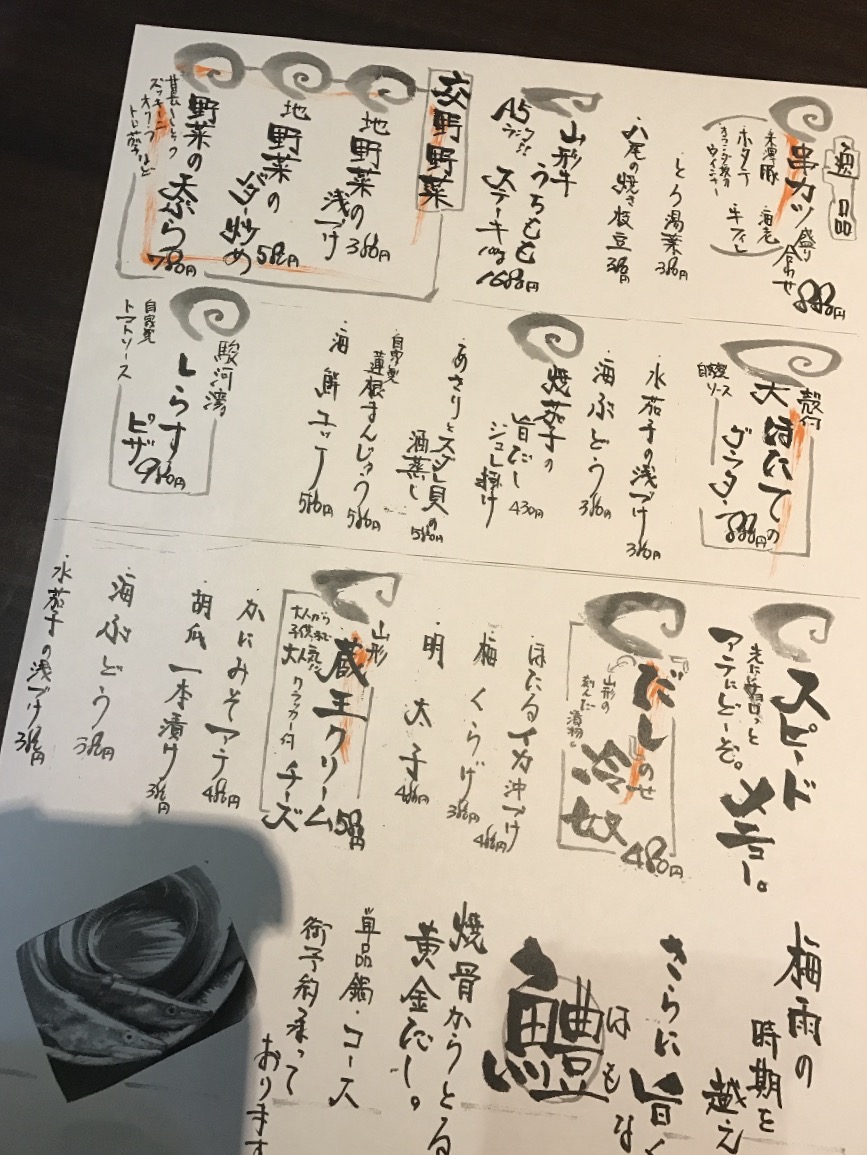 逸品
串カツ盛り合わせ 880円
米澤豚 海老
ホタテ 牛フィレ
ウインナー
・とろ湯葉 380円
・八尾の焼き枝豆 380円
山形牛
うちもも
A5ランク
ステーキ 100g 1680円
交野野菜
地野菜の
浅づけ 380円
地野菜の
塩炒め 580円
野菜の天ぷら 780円
ズッキーニ
オクラ など
トロ茄子
殻付
大ほたての
グラタン 880円
自家製
ソース
・水茄子の浅づけ 380円
・海ぶどう 380円
焼茄子の
旨だし
ジュレ掛け 430円
・あさりとスダレ貝の
酒蒸し 580円
自家製
・蓮根まんじゅう 580円
・海鮮ユッケ 580円
駿河湾
しらす
ピザ 980円
自家製
トマトソース
スピード
メニュー。
先にちょこっと
アテにどーぞ。
『だし』のせ
冷奴 480円
山形の
刻んだ
漬物。
・ほたるイカ沖づけ 480円
・梅くらげ 380円
・明太子 480円
山形
蔵王クリーム
チーズ 580円
大人から
子供まで
大人気だ
クラッカー付
・かにみそアテ 480円
・胡瓜一本漬け 380円
・海ぶどう 380円
・水茄子の浅づけ 380円
梅雨の
時期を
越え
さらに旨く
はもな
鱧
焼骨からとる
黄金だし。
単品鍋・コース
御予約承って
おります